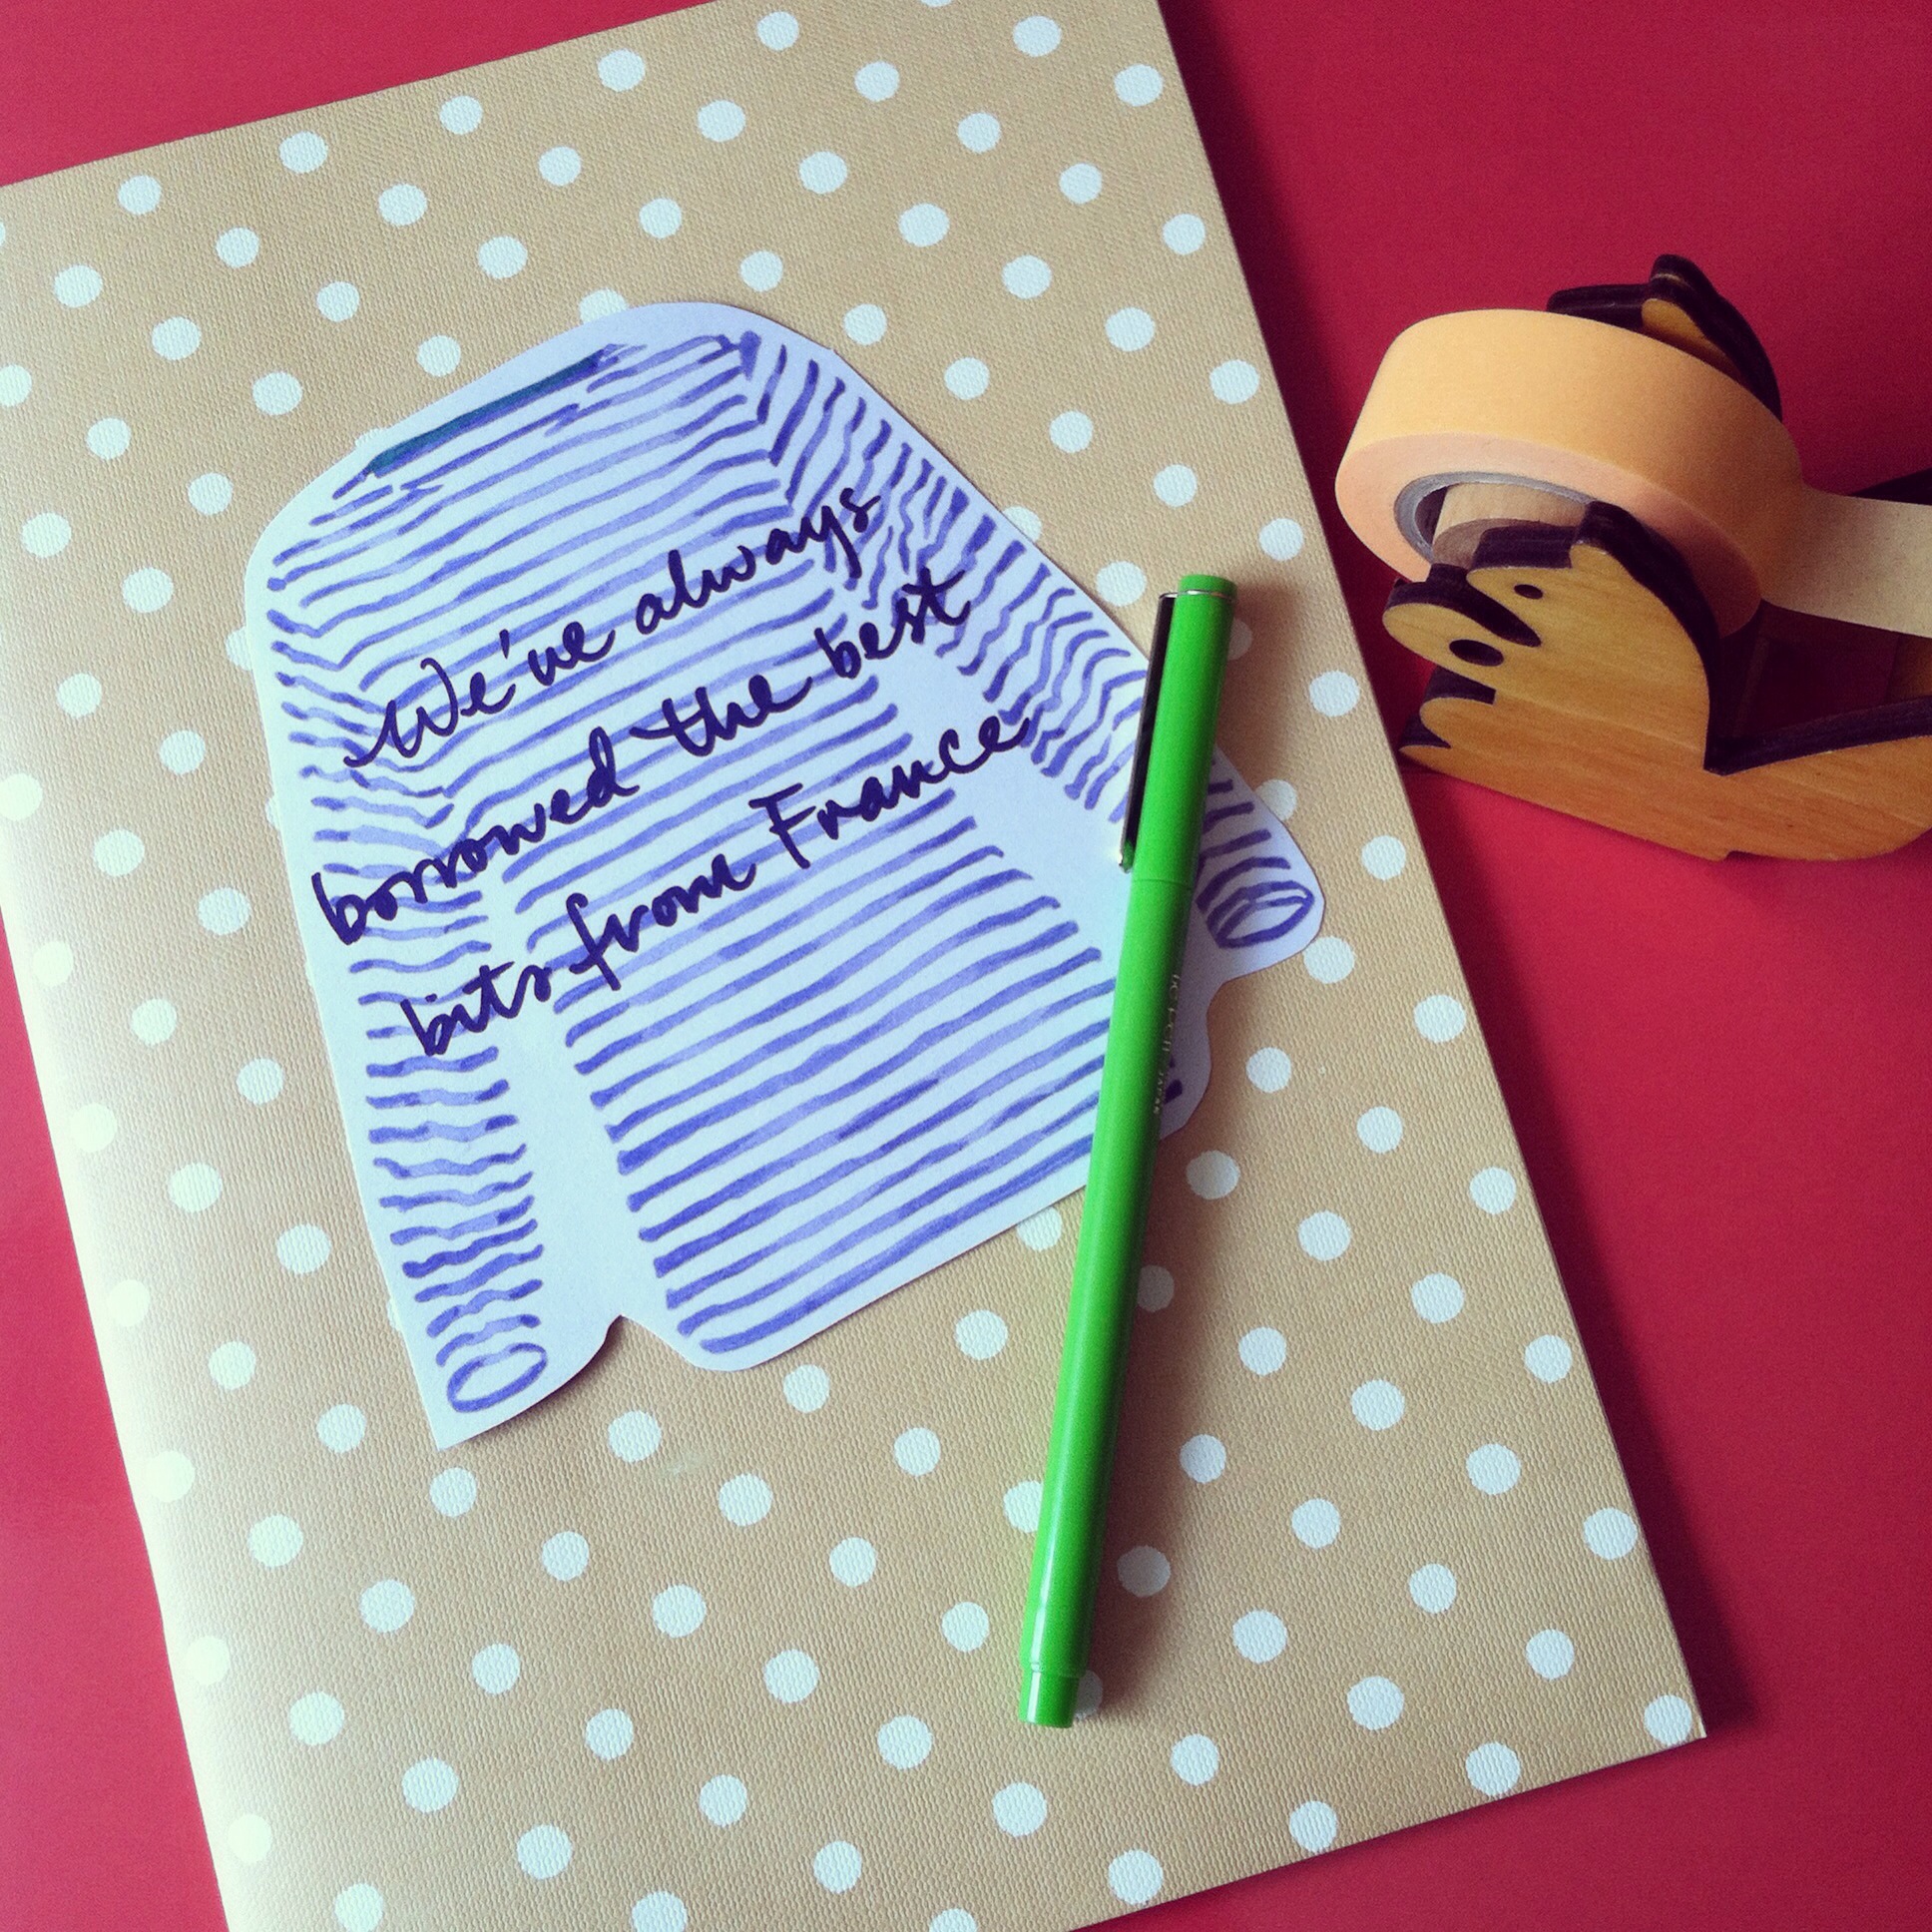 We've always
borrowed the best
bits from France